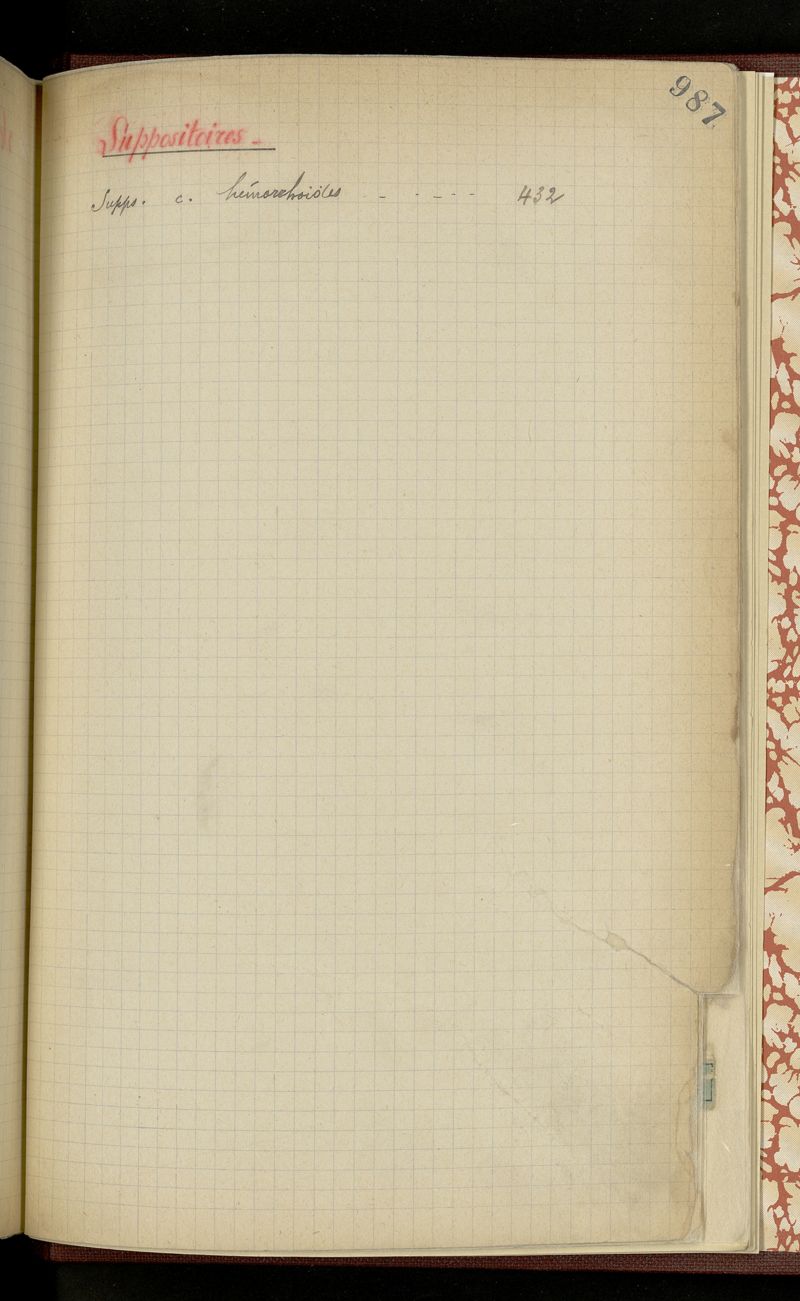 987
Suppositoires -
Supps. c. hémorrhoïdes - - - - - 432